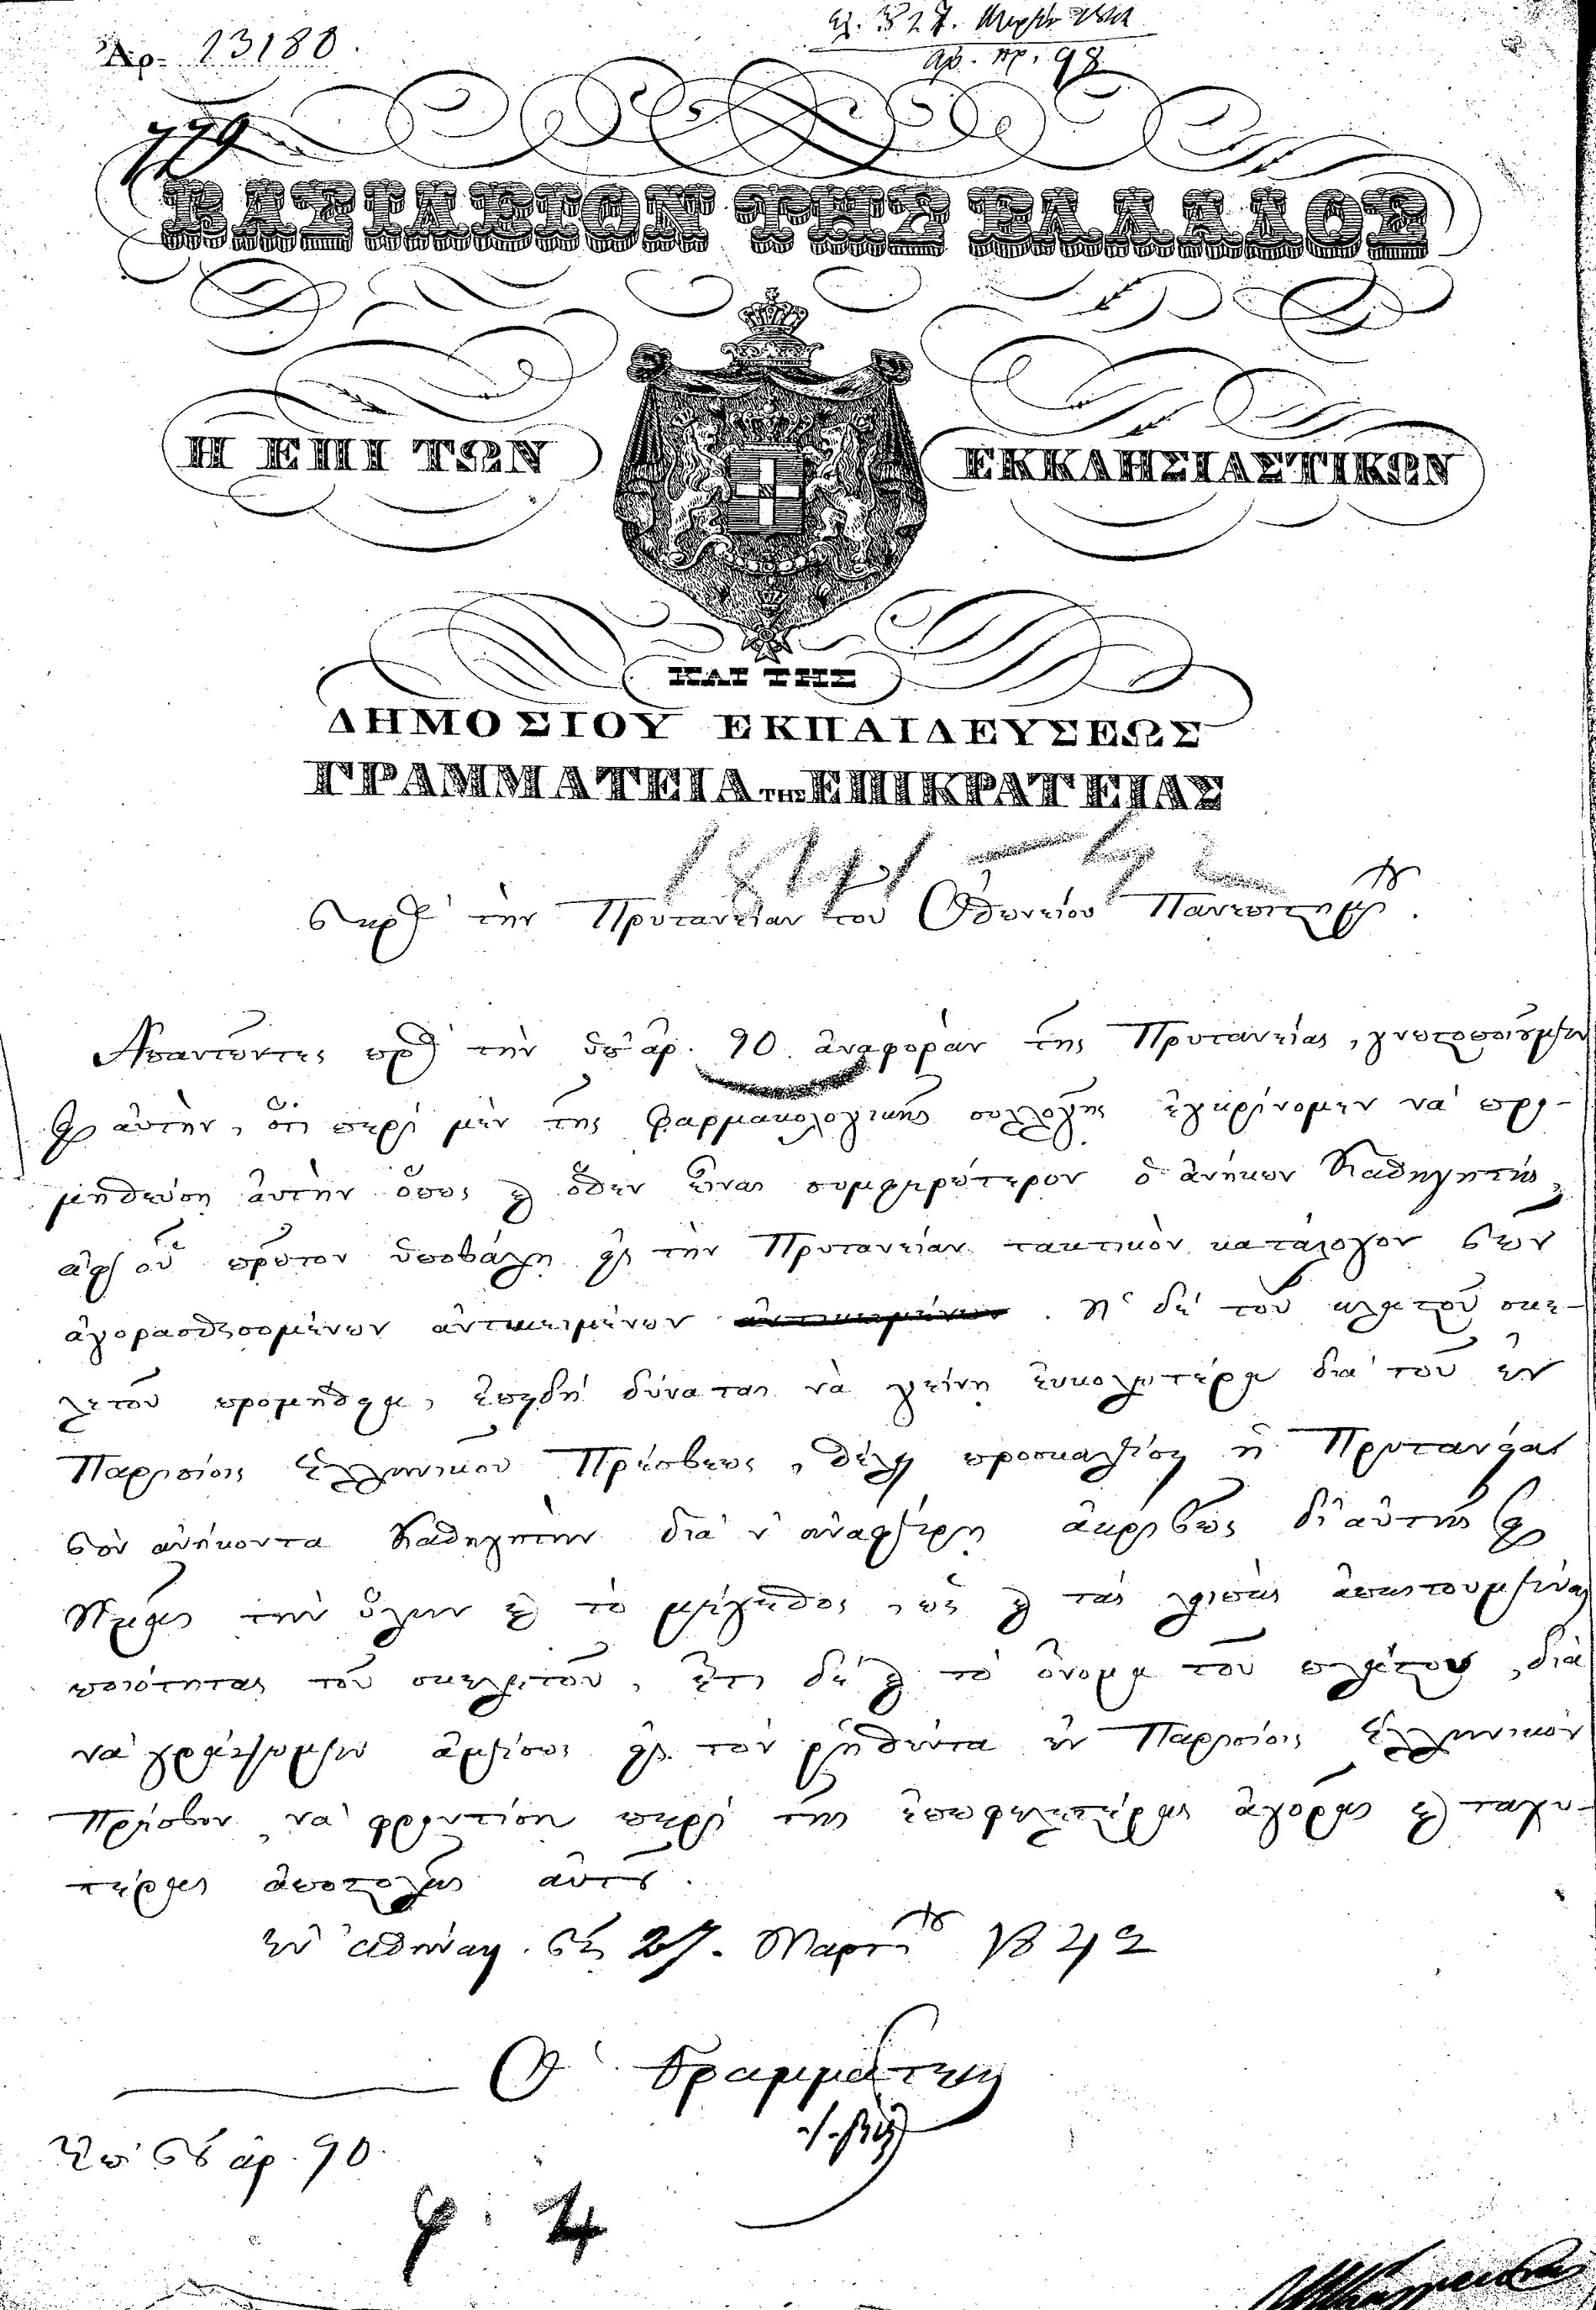 Ἀρ. 13180.
Ἀρ. πρ. 98
779
ΒΑΣΙΛΕΙΟΝ ΤΗΣ ΕΛΛΑΔΟΣ
Η ΕΠΙ ΤΩΝ ΕΚΚΛΗΣΙΑΣΤΙΚΩΝ
ΚΑΙ ΤΗΣ
ΔΗΜΟΣΙΟΥ ΕΚΠΑΙΔΕΥΣΕΩΣ
ΓΡΑΜΜΑΤΕΙΑ ΤΗΣ ΕΠΙΚΡΑΤΕΙΑΣ
1841-42
Πρὸς τὴν Πρυτανείαν τοῦ Ὀθωνείου Πανεπιστημίου.
Ἀπαντῶντες πρὸς τὴν ὑπ' ἀρ. 90 ἀναφορὰν τῆς Πρυτανείας, γνωστοποιοῦμεν
εἰς αὐτὴν, ὅτι περὶ μὲν τῆς φαρμακολογικῆς συλλογῆς ἐγκρίνομεν νὰ προ-
μηθεύσῃ αὐτὴν ὅπως καὶ ὅθεν εἶναι συμφερώτερον ὁ ἀνήκων Καθηγητὴς,
ἀφ' οὗ πρῶτον ὑποβάλῃ εἰς τὴν Πρυτανείαν τακτικὸν κατάλογον τῶν
ἀγορασθησομένων ἀντικειμένων. Ἡ δὲ τοῦ σκε-
λετοῦ προμήθεια, ἐπειδὴ δύναται νὰ γείνῃ εὐκολωτέρα διὰ τοῦ ἐν
Παρισίοις Ἑλληνικοῦ Πρέσβεως, θέλει προσκαλέσει ἡ Πρυτανεία
τὸν ἀνήκοντα Καθηγητὴν διὰ ν' ἀναφέρῃ ἀκριβῶς δι' αὐτῆς εἰς
Ἡμᾶς τὴν ὕλην καὶ τὸ μέγεθος, ὡς καὶ τὰς λοιπὰς ἀπαιτουμένας
ποιότητας τοῦ σκελετοῦ, ἔτι δὲ καὶ τὸ ὄνομα τοῦ, διὰ
νὰ γράψωμεν ἀμέσως εἰς τὸν ῥηθέντα ἐν Παρισίοις Ἑλληνικὸν
Πρέσβυν, νὰ φροντίσῃ περὶ τῆς ἐπωφελεστέρας ἀγορᾶς καὶ ταχυ-
τέρας ἀποστολῆς αὐτοῦ.
Ἐν Ἀθήναις τῇ 27. Μαρτίου 1842
Ὁ Γραμματεὺς
Ἐπὶ τοῦ ἀρ. 90.
φ: 4